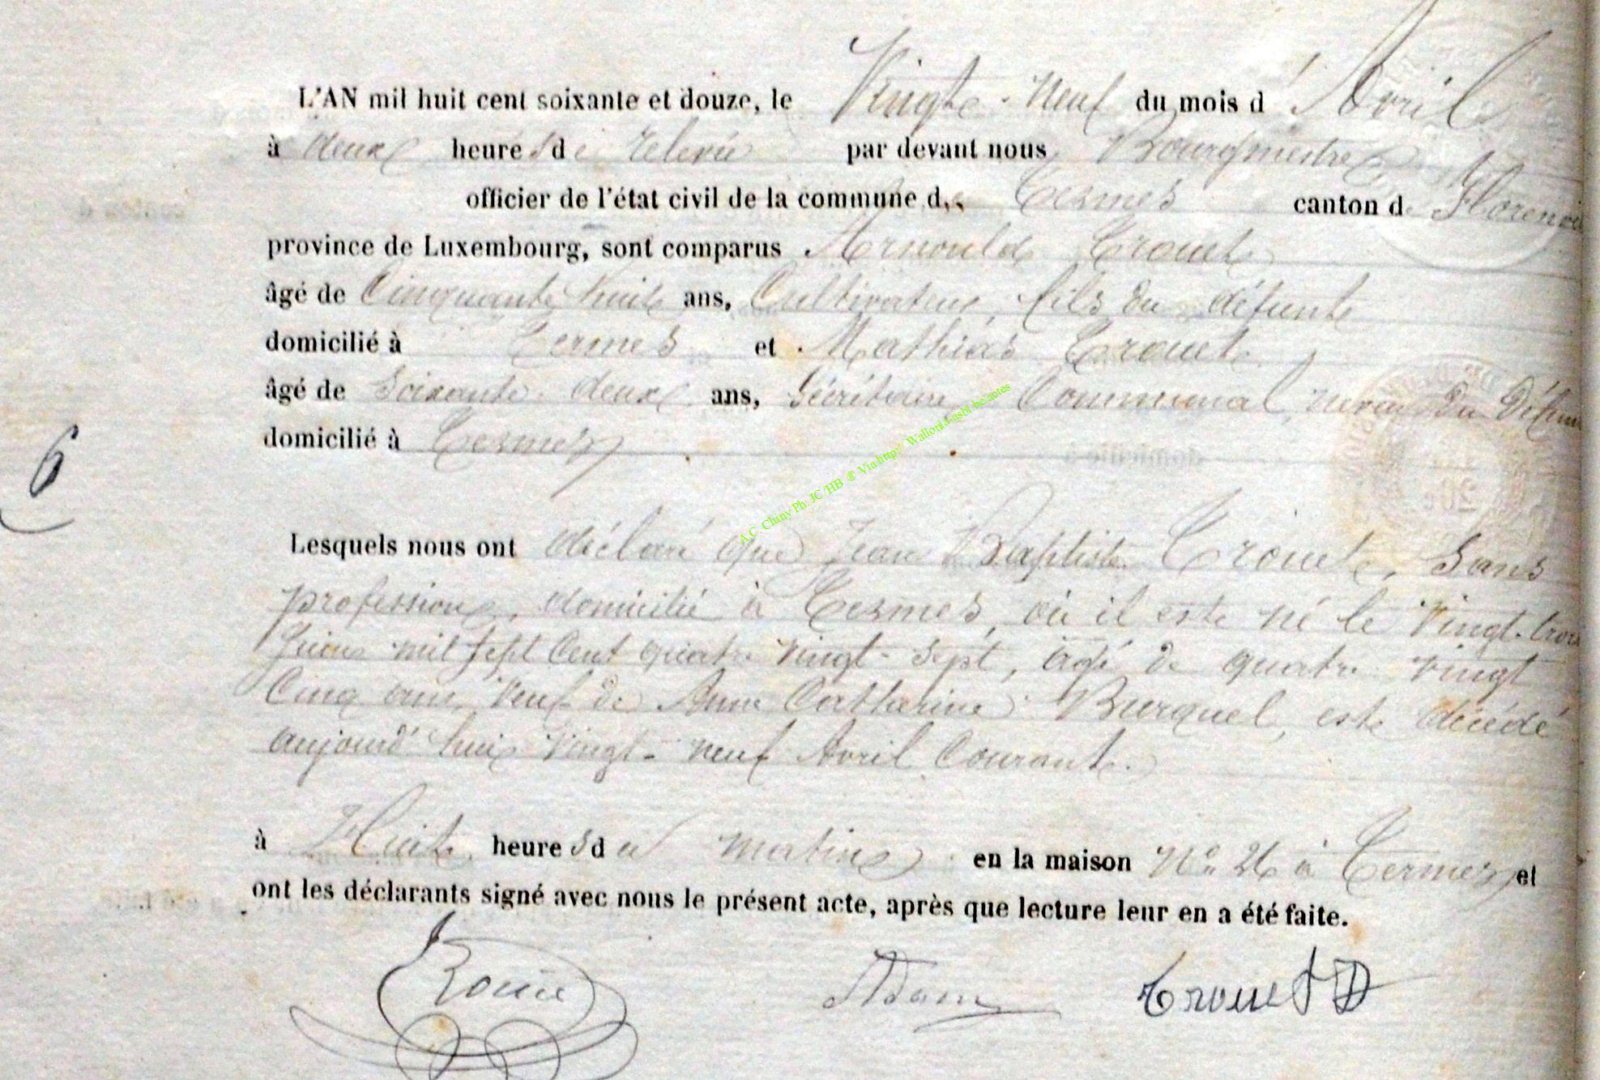 L'AN mil huit cent soixante et douze, le Vingt-Neuf du mois d'Avril
à deux heures de relevée par devant nous Bourgmestre
officier de l'état civil de la commune de Termes canton de Florenvi
province de Luxembourg, sont comparus Arnould Trouet
âgé de Cinquante huit ans, Cultivateur, fils du défunt
domicilié à Termes et Mathias Trouet
âgé de Soixante-deux ans, Sécrétaire Communal, neveu du Défun
domicilié à Termes
6
Lesquels nous ont déclaré que Jean Baptiste Trouet, Sans
profession, domicilié à Termes, où il est né le Vingt-trois
Juin mil sept Cent quatre vingt-sept, âgé de quatre vingt
Cinq ans, Veuf de Anne Catherine Burquel, est décédé
aujourd'hui vingt-neuf Avril Courant.
à Huit heures du matin en la maison N° 26 à Termes et
ont les déclarants signé avec nous le présent acte, après que lecture leur en a été faite.
Adam Trouet